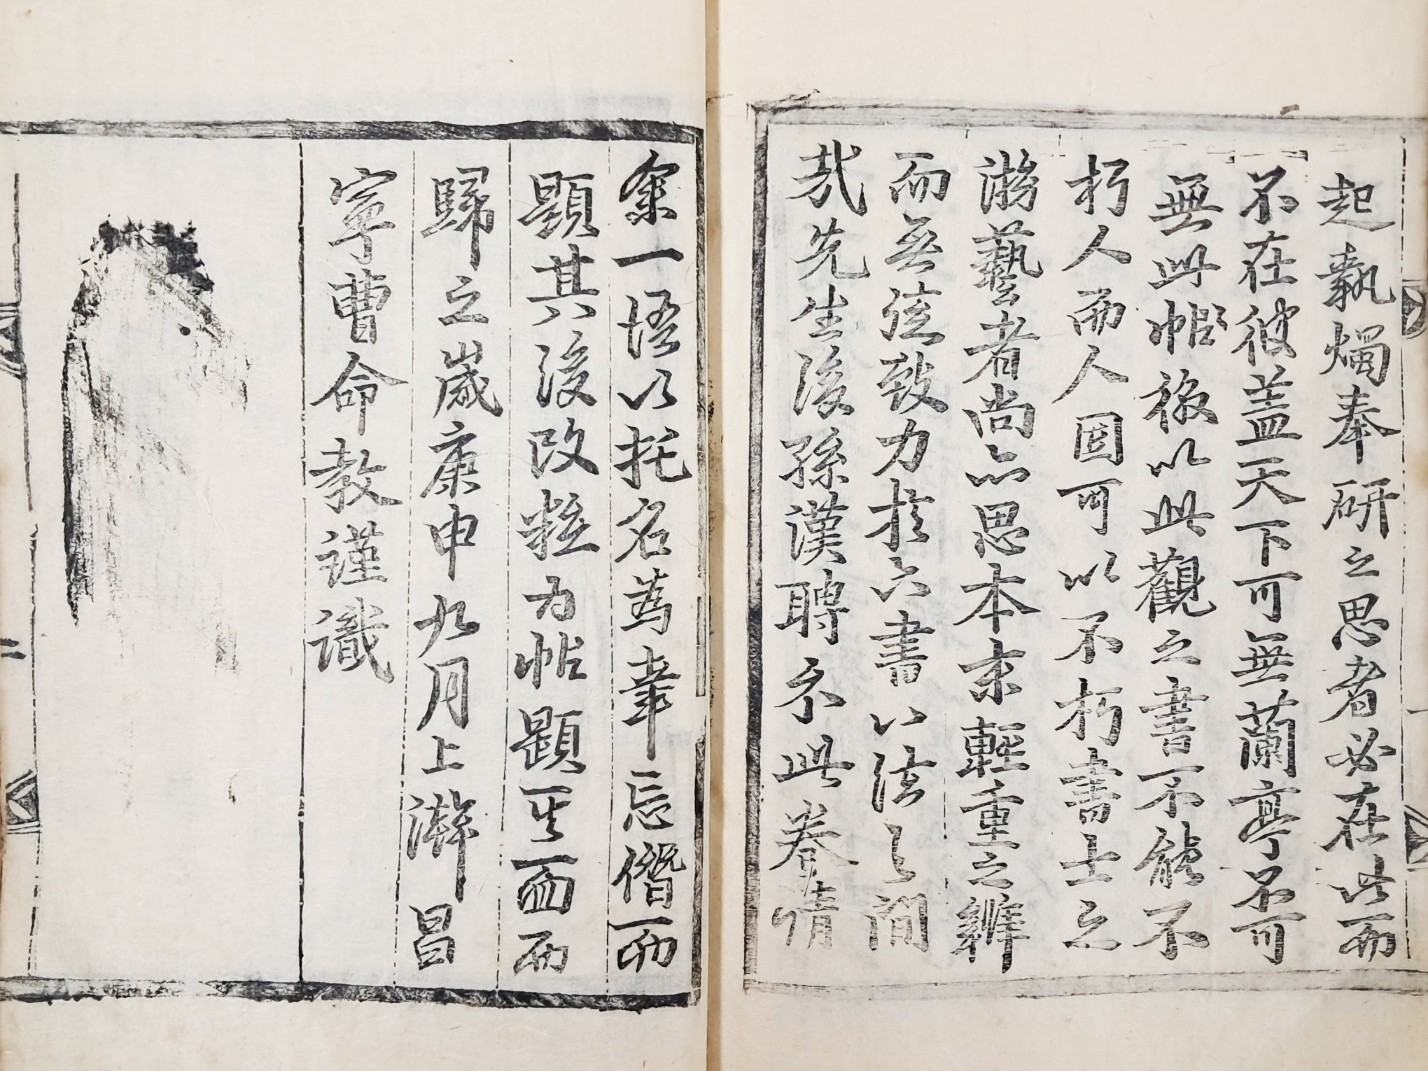 起執燭奉研之思者必在此而
不在彼盖天下可無蘭亭不可
無此帖後以此觀之書不能不
朽人而人固可以不朽書士之
游藝者尚亦思本末輕重之辨
而無徒致力於六書八法之間
哉先生後孫漢聘示此卷請
余一語以托名爲幸忘僭而
題其後改粧为帖題其面而
歸之歲庚申九月上澣昌
寧曹命教謹識
二